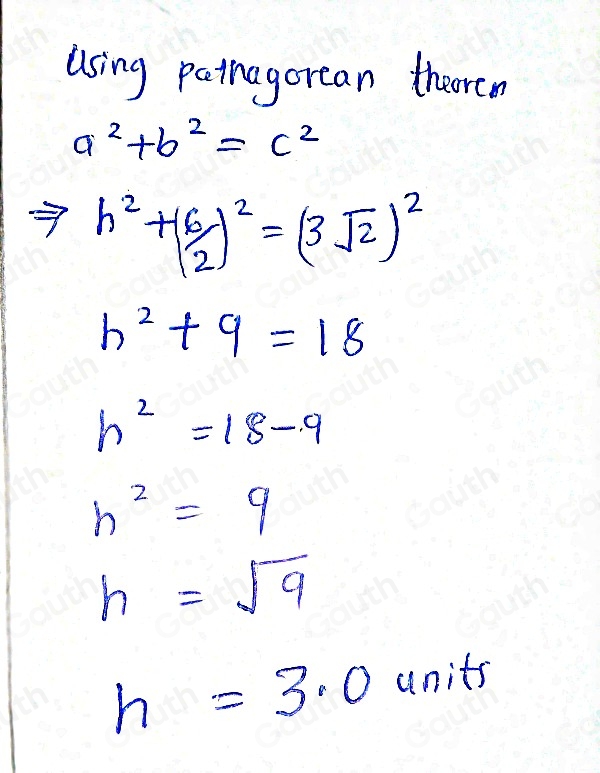 Using pathagorean theorem
a² + b² = c²
⇒ h² + (6/2)² = (3√2)²
h² + 9 = 18
h² = 18 - 9
h² = 9
h = √9
h = 3.0 units